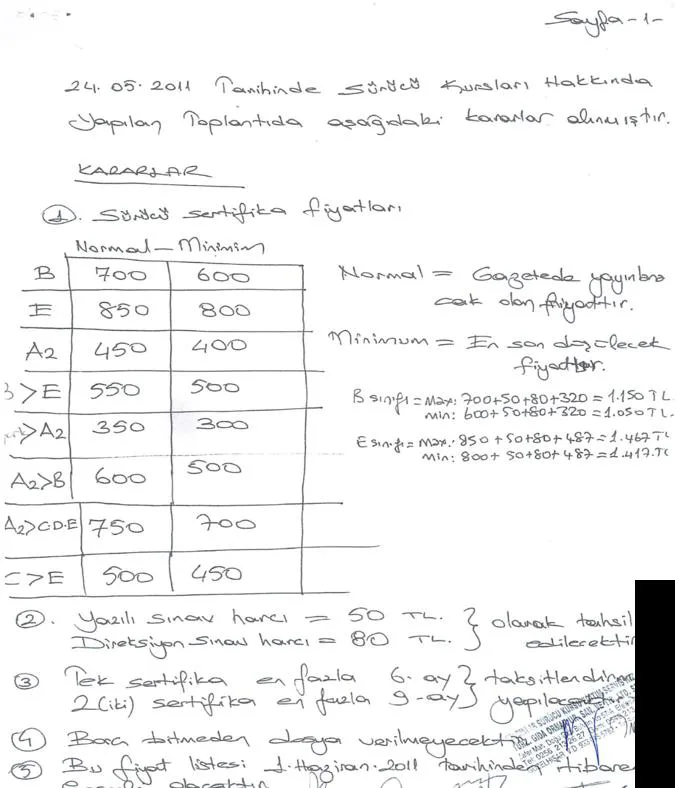 Sayfa-1-
24.05.2011 Tarihinde Sürücü Kursları Hakkında
Yapılan Toplantıda aşağıdaki kararlar alınmıştır.
KARARLAR
1. Sürücü sertifika fiyatları
Normal - Minimim
B 700 600
E 850 800
A2 450 400
B>E 550 500
>A2 350 300
A2>B 600 500
A2>C.D.E 750 700
C>E 500 450
Normal = Gazetede yayınlana
cak olan fiyattır.
Minimum = En son düşülecek
fiyattır.
B sınıfı = Max: 700+50+80+320 = 1.150 TL
min: 600+50+80+320 = 1.050 TL.
E sınıfı = Max: 850+50+80+487 = 1.467 TL
Min: 800+50+80+487 = 1.417 TL
2. Yazılı sınav harcı = 50 TL. } olarak tahsil
Direksiyon Sınav harcı = 80 TL. } edilecektir
3 Tek sertifika en fazla 6-ay } taksitlendirme
2(iki) sertifika en fazla 9-ay } yapılacaktır
4 Borcu bitmeden dosya verilmeyecekt
5 Bu fiyat listesi 1.Haziran.2011 tarihinden itibaren